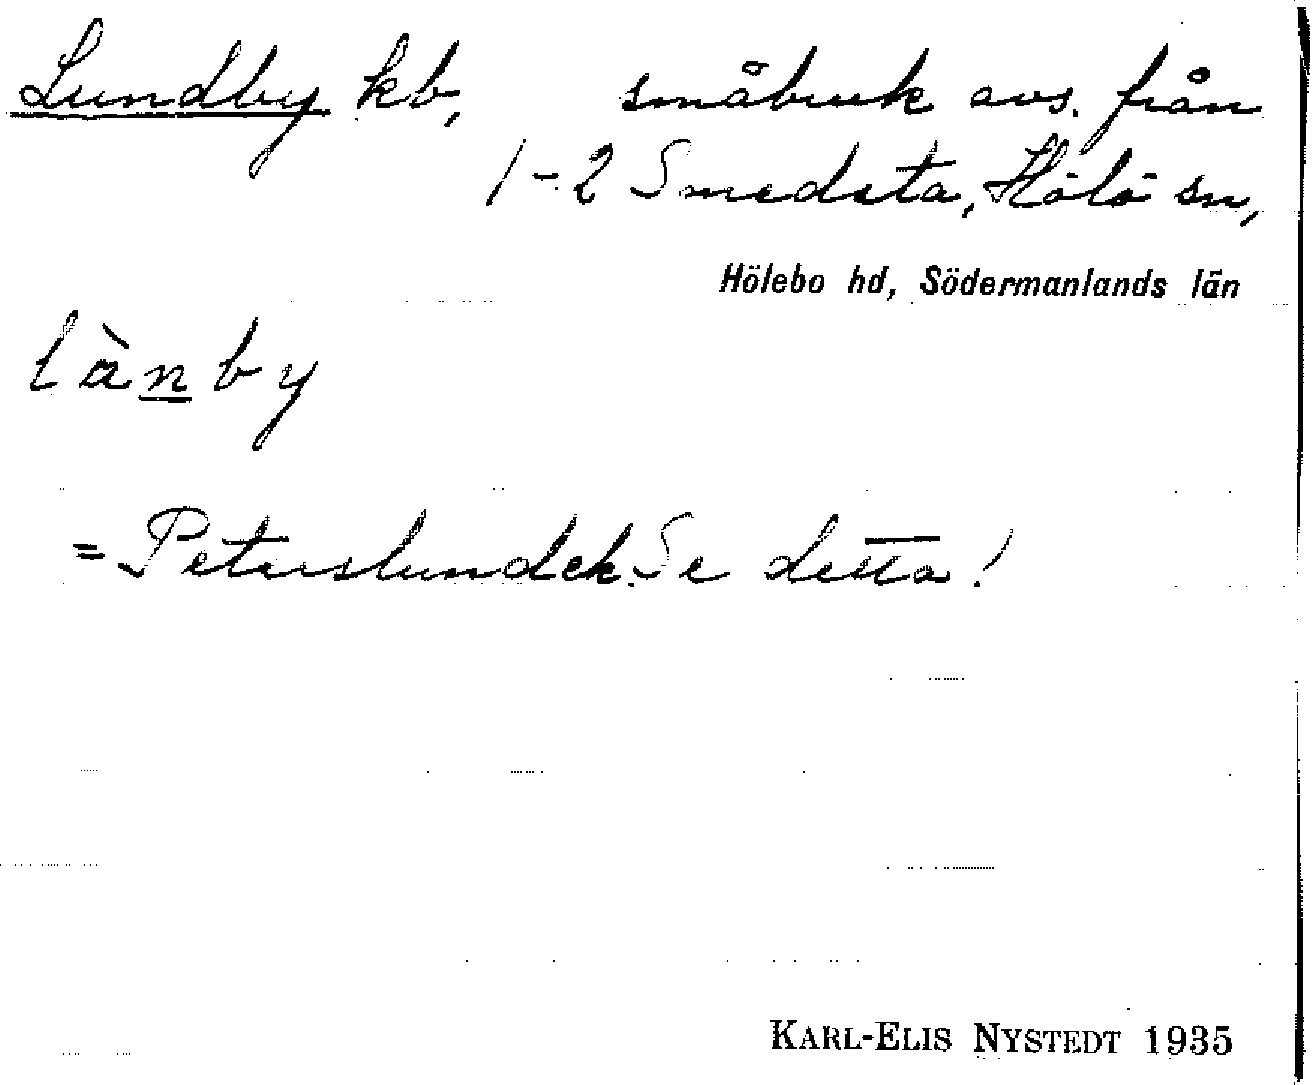 Lundby kb, småbruk avs. från
1-2 Smedsta, Hölö sn,
Hölebo hd, Södermanlands län
lànby
= Peterslundek. Se detta!
KARL-ELIS NYSTEDT 1935